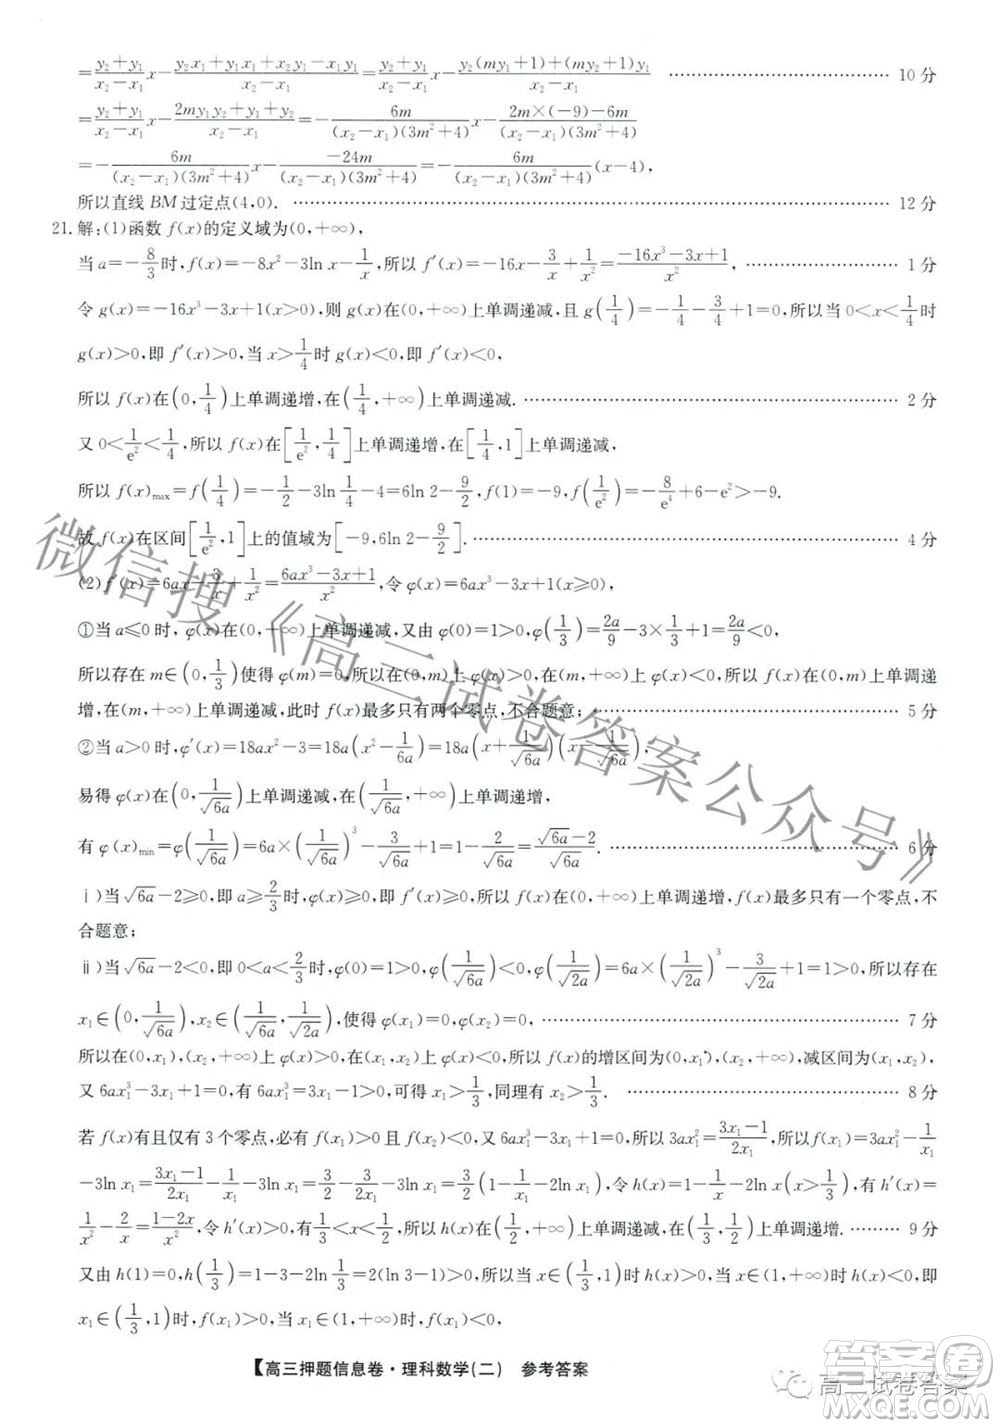 =\frac{y_2+y_1}{x_2-x_1}x-\frac{y_2x_1+y_1x_1+x_2y_1-x_1y_1}{x_2-x_1}=\frac{y_2+y_1}{x_2-x_1}x-\frac{y_2(my_1+1)+(my_2+1)y_1}{x_2-x_1} …… 10 分
=\frac{y_2+y_1}{x_2-x_1}x-\frac{2my_1y_2+y_1+y_2}{x_2-x_1}=-\frac{6m}{(x_2-x_1)(3m^2+4)}x-\frac{2m×(-9)-6m}{(x_2-x_1)(3m^2+4)}
=-\frac{6m}{(x_2-x_1)(3m^2+4)}x-\frac{-24m}{(x_2-x_1)(3m^2+4)}=-\frac{6m}{(x_2-x_1)(3m^2+4)}(x-4),
所以直线 BM 过定点(4,0). …… 12 分
21. 解:(1)函数 f(x)的定义域为(0,+∞),
当 a=-\frac{8}{3}时,f(x)=-8x^2-3ln x-\frac{1}{x},所以 f′(x)=-16x-\frac{3}{x}+\frac{1}{x^2}=\frac{-16x^3-3x+1}{x^2}, …… 1 分
令 g(x)=-16x^3-3x+1(x>0),则 g(x)在(0,+∞)上单调递减,且 g(\frac{1}{4})=-\frac{1}{4}-\frac{3}{4}+1=0,所以当 0<x<\frac{1}{4}时
g(x)>0,即 f′(x)>0,当 x>\frac{1}{4}时 g(x)<0,即 f′(x)<0,
所以 f(x)在(0,\frac{1}{4})上单调递增,在(\frac{1}{4},+∞)上单调递减. …… 2 分
又 0<\frac{1}{e^2}<\frac{1}{4},所以 f(x)在[\frac{1}{e^2},\frac{1}{4}]上单调递增,在[\frac{1}{4},1]上单调递减,
所以 f(x)_{max}=f(\frac{1}{4})=-\frac{1}{2}-3ln\frac{1}{4}-4=6ln 2-\frac{9}{2},f(1)=-9,f(\frac{1}{e^2})=-\frac{8}{e^4}+6-e^2>-9.
故 f(x)在区间[\frac{1}{e^2},1]上的值域为[-9,6ln 2-\frac{9}{2}]. …… 4 分
(2)f′(x)=6ax-\frac{3}{x}+\frac{1}{x^2}=\frac{6ax^3-3x+1}{x^2},令 φ(x)=6ax^3-3x+1(x>0),
①当 a≤0 时,φ(x)在(0,+∞)上单调递减,又由 φ(0)=1>0,φ(\frac{1}{3})=\frac{2a}{9}-3×\frac{1}{3}+1=\frac{2a}{9}≤0,
所以存在 m∈(0,\frac{1}{3}]使得 φ(m)=0,所以在(0,m)上 φ(x)>0,在(m,+∞)上 φ(x)<0,即 f(x)在(0,m)上单调递增,
在(m,+∞)上单调递减,此时 f(x)最多只有两个零点,不合题意; …… 5 分
②当 a>0 时,φ′(x)=18ax^2-3=18a(x^2-\frac{1}{6a})=18a(x+\frac{1}{\sqrt{6a}})(x-\frac{1}{\sqrt{6a}}),
易得 φ(x)在(0,\frac{1}{\sqrt{6a}})上单调递减,在(\frac{1}{\sqrt{6a}},+∞)上单调递增,
有 φ(x)_{min}=φ(\frac{1}{\sqrt{6a}})=\frac{1}{\sqrt{6a}}-\frac{3}{\sqrt{6a}}+1=1-\frac{2}{\sqrt{6a}}=\frac{\sqrt{6a}-2}{\sqrt{6a}}. …… 6 分
ⅰ)当\sqrt{6a}-2≥0,即 a≥\frac{2}{3}时,φ(x)≥0,可得 f′(x)≥0,函数 f(x)单调递增,所以 f(x)最多只有一个零点,不
合题意;
ⅱ)当\sqrt{6a}-2<0,即 0<a<\frac{2}{3}时,由 φ(0)=1>0,φ(\frac{1}{\sqrt{6a}})<0,φ(\frac{1}{\sqrt{2a}})=6a×(\frac{1}{\sqrt{2a}})^3-\frac{3}{\sqrt{2a}}+1=1>0,所以存在
x_1∈(0,\frac{1}{\sqrt{6a}}),x_2∈(\frac{1}{\sqrt{6a}},\frac{1}{\sqrt{2a}}),使得 φ(x_1)=φ(x_2)=0, …… 7 分
所以在(0,x_1),(x_2,+∞)上 φ(x)>0,在(x_1,x_2)上 φ(x)<0,所以 f(x)的增区间为(0,x_1),(x_2,+∞),减区间为(x_1,x_2),
又 6ax_1^3-3x_1+1=0,有 6ax_1^3=3x_1-1>0,可得 x_1>\frac{1}{3},同理可得 x_2>\frac{1}{3}. …… 8 分
若 f(x)有且仅有 3 个零点,必有 f(x_1)>0 且 f(x_2)<0,又由 6ax_1^3-3x_1+1=0,所以 3ax_1^2=\frac{3x_1-1}{2x_1},所以 f(x_1)=3ax_1^2-\frac{1}{x_1}
-3ln x_1=\frac{3x_1-1}{2x_1}-\frac{1}{x_1}-3ln x_1=\frac{3}{2}-\frac{3}{2x_1}-3ln x_1=\frac{3}{2}(1-\frac{1}{x_1}-2ln x_1),令 h(x)=1-\frac{1}{x}-2ln x(x>\frac{1}{3}),有 h′(x)=
\frac{1}{x^2}-\frac{2}{x}=\frac{1-2x}{x^2},令 h′(x)>0,有\frac{1}{3}<x<\frac{1}{2},所以 h(x)在(\frac{1}{2},+∞)上单调递减,在(\frac{1}{3},\frac{1}{2})上单调递增. …… 9 分
又由 h(1)=0,h(\frac{1}{3})=1-3-2ln\frac{1}{3}=2(ln 3-1)>0,所以当 x∈(\frac{1}{3},1)时 h(x)>0,当 x∈(1,+∞)时 h(x)<0,即
x_1∈(\frac{1}{3},1)时,f(x_1)>0,当 x_1∈(1,+∞)时,f(x_1)<0,
【高三押题信息卷·理科数学(二) 参考答案】
微信搜《高三试卷答案公众号》
高三试卷答案
答案圈
MXQE.COM